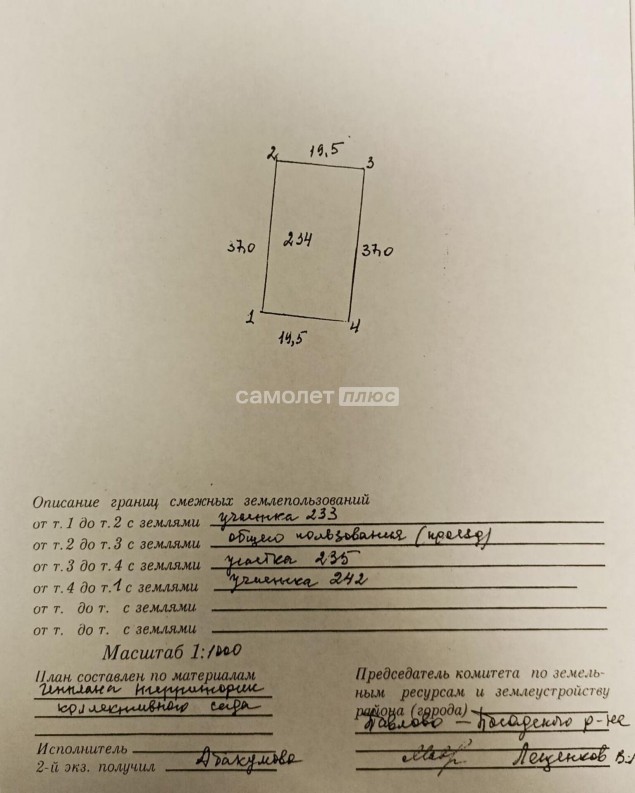 2 19,5 3
37,0 234 37,0
1 19,5 4
самолет плюс
Описание границ смежных землепользований
от т. 1 до т. 2 с землями участка 233
от т. 2 до т. 3 с землями общего пользования (проезд)
от т. 3 до т. 4 с землями участка 235
от т. 4 до т. 1 с землями участка 242
от т. до т. с землями
от т. до т. с землями
Масштаб 1:1000
План составлен по материалам
генплана территории
коллективного сада
Исполнитель
2-й экз. получил Абакумова
Председатель комитета по земель-
ным ресурсам и землеустройству
района (города)
Павлово-Посадского р-на
Лещенков В.